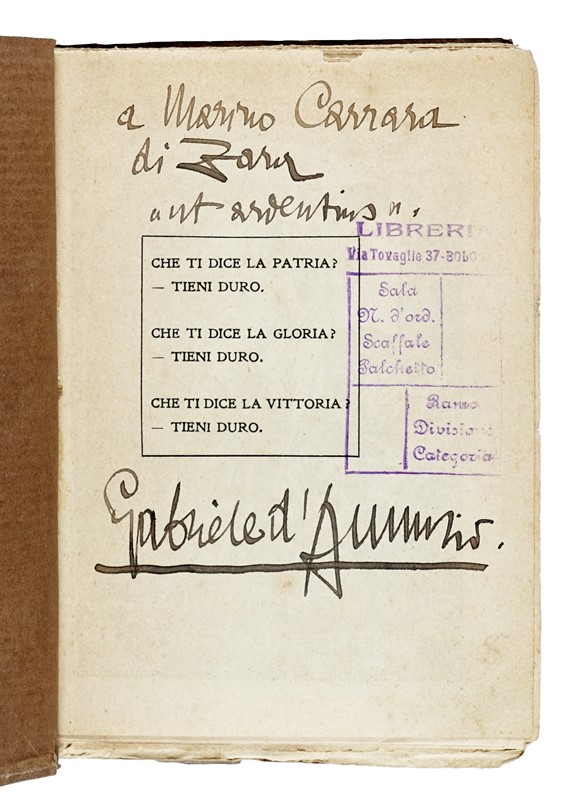 a Marino Carrara
di Zara
LIBRERI
Via Tovaglie 37-BOLO
CHE TI DICE LA PATRIA?
— TIENI DURO.
CHE TI DICE LA GLORIA?
— TIENI DURO.
CHE TI DICE LA VITTORIA?
— TIENI DURO.
Sala
N. d'ord.
Scaffale
Palchetto
Ramo
Divisione
Categoria
Gabriele d'Annunzio.